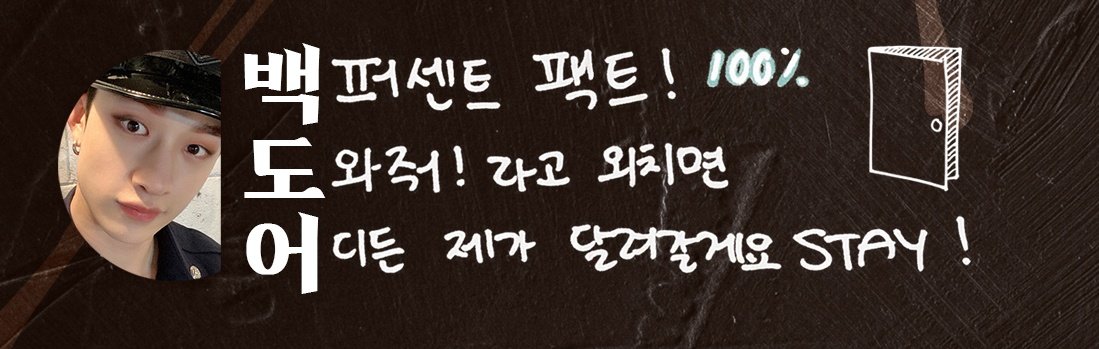 백퍼센트 팩트! 100%
도와줘! 라고 외치면
어디든 제가 달려갈게요 STAY!